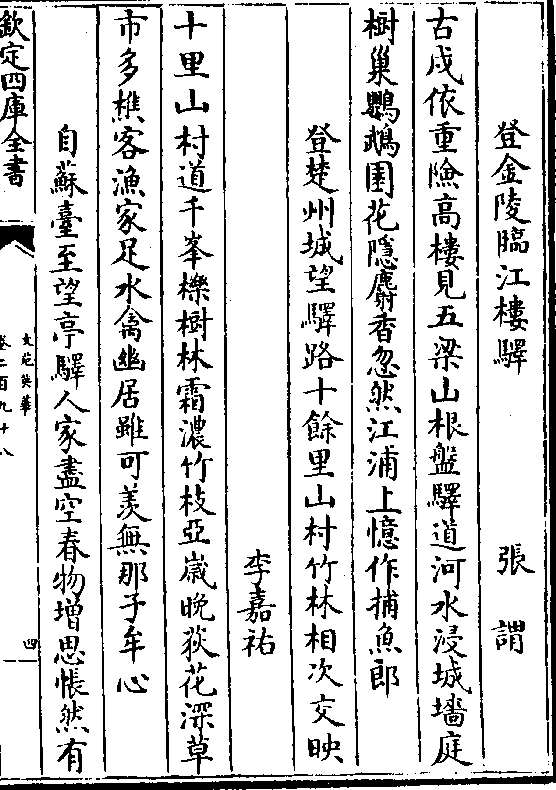 登金陵臨江樓驛　張謂
古戍依重險高樓見五梁山根盤驛道河水浸城墻庭
樹巢鸚鵡園花隱麝香忽然江浦上憶作捕魚郎
登楚州城望驛路十餘里山村竹林相次交映
李嘉祐
十里山村道千峯櫟樹林霜濃竹枝亞嵗晚荻花深草
市多樵客漁家足水禽幽居雖可羨無那子牟心
自蘇臺至望亭驛人家盡空春物增思悵然有
欽定四庫全書
文苑英華
卷二百九十八
四